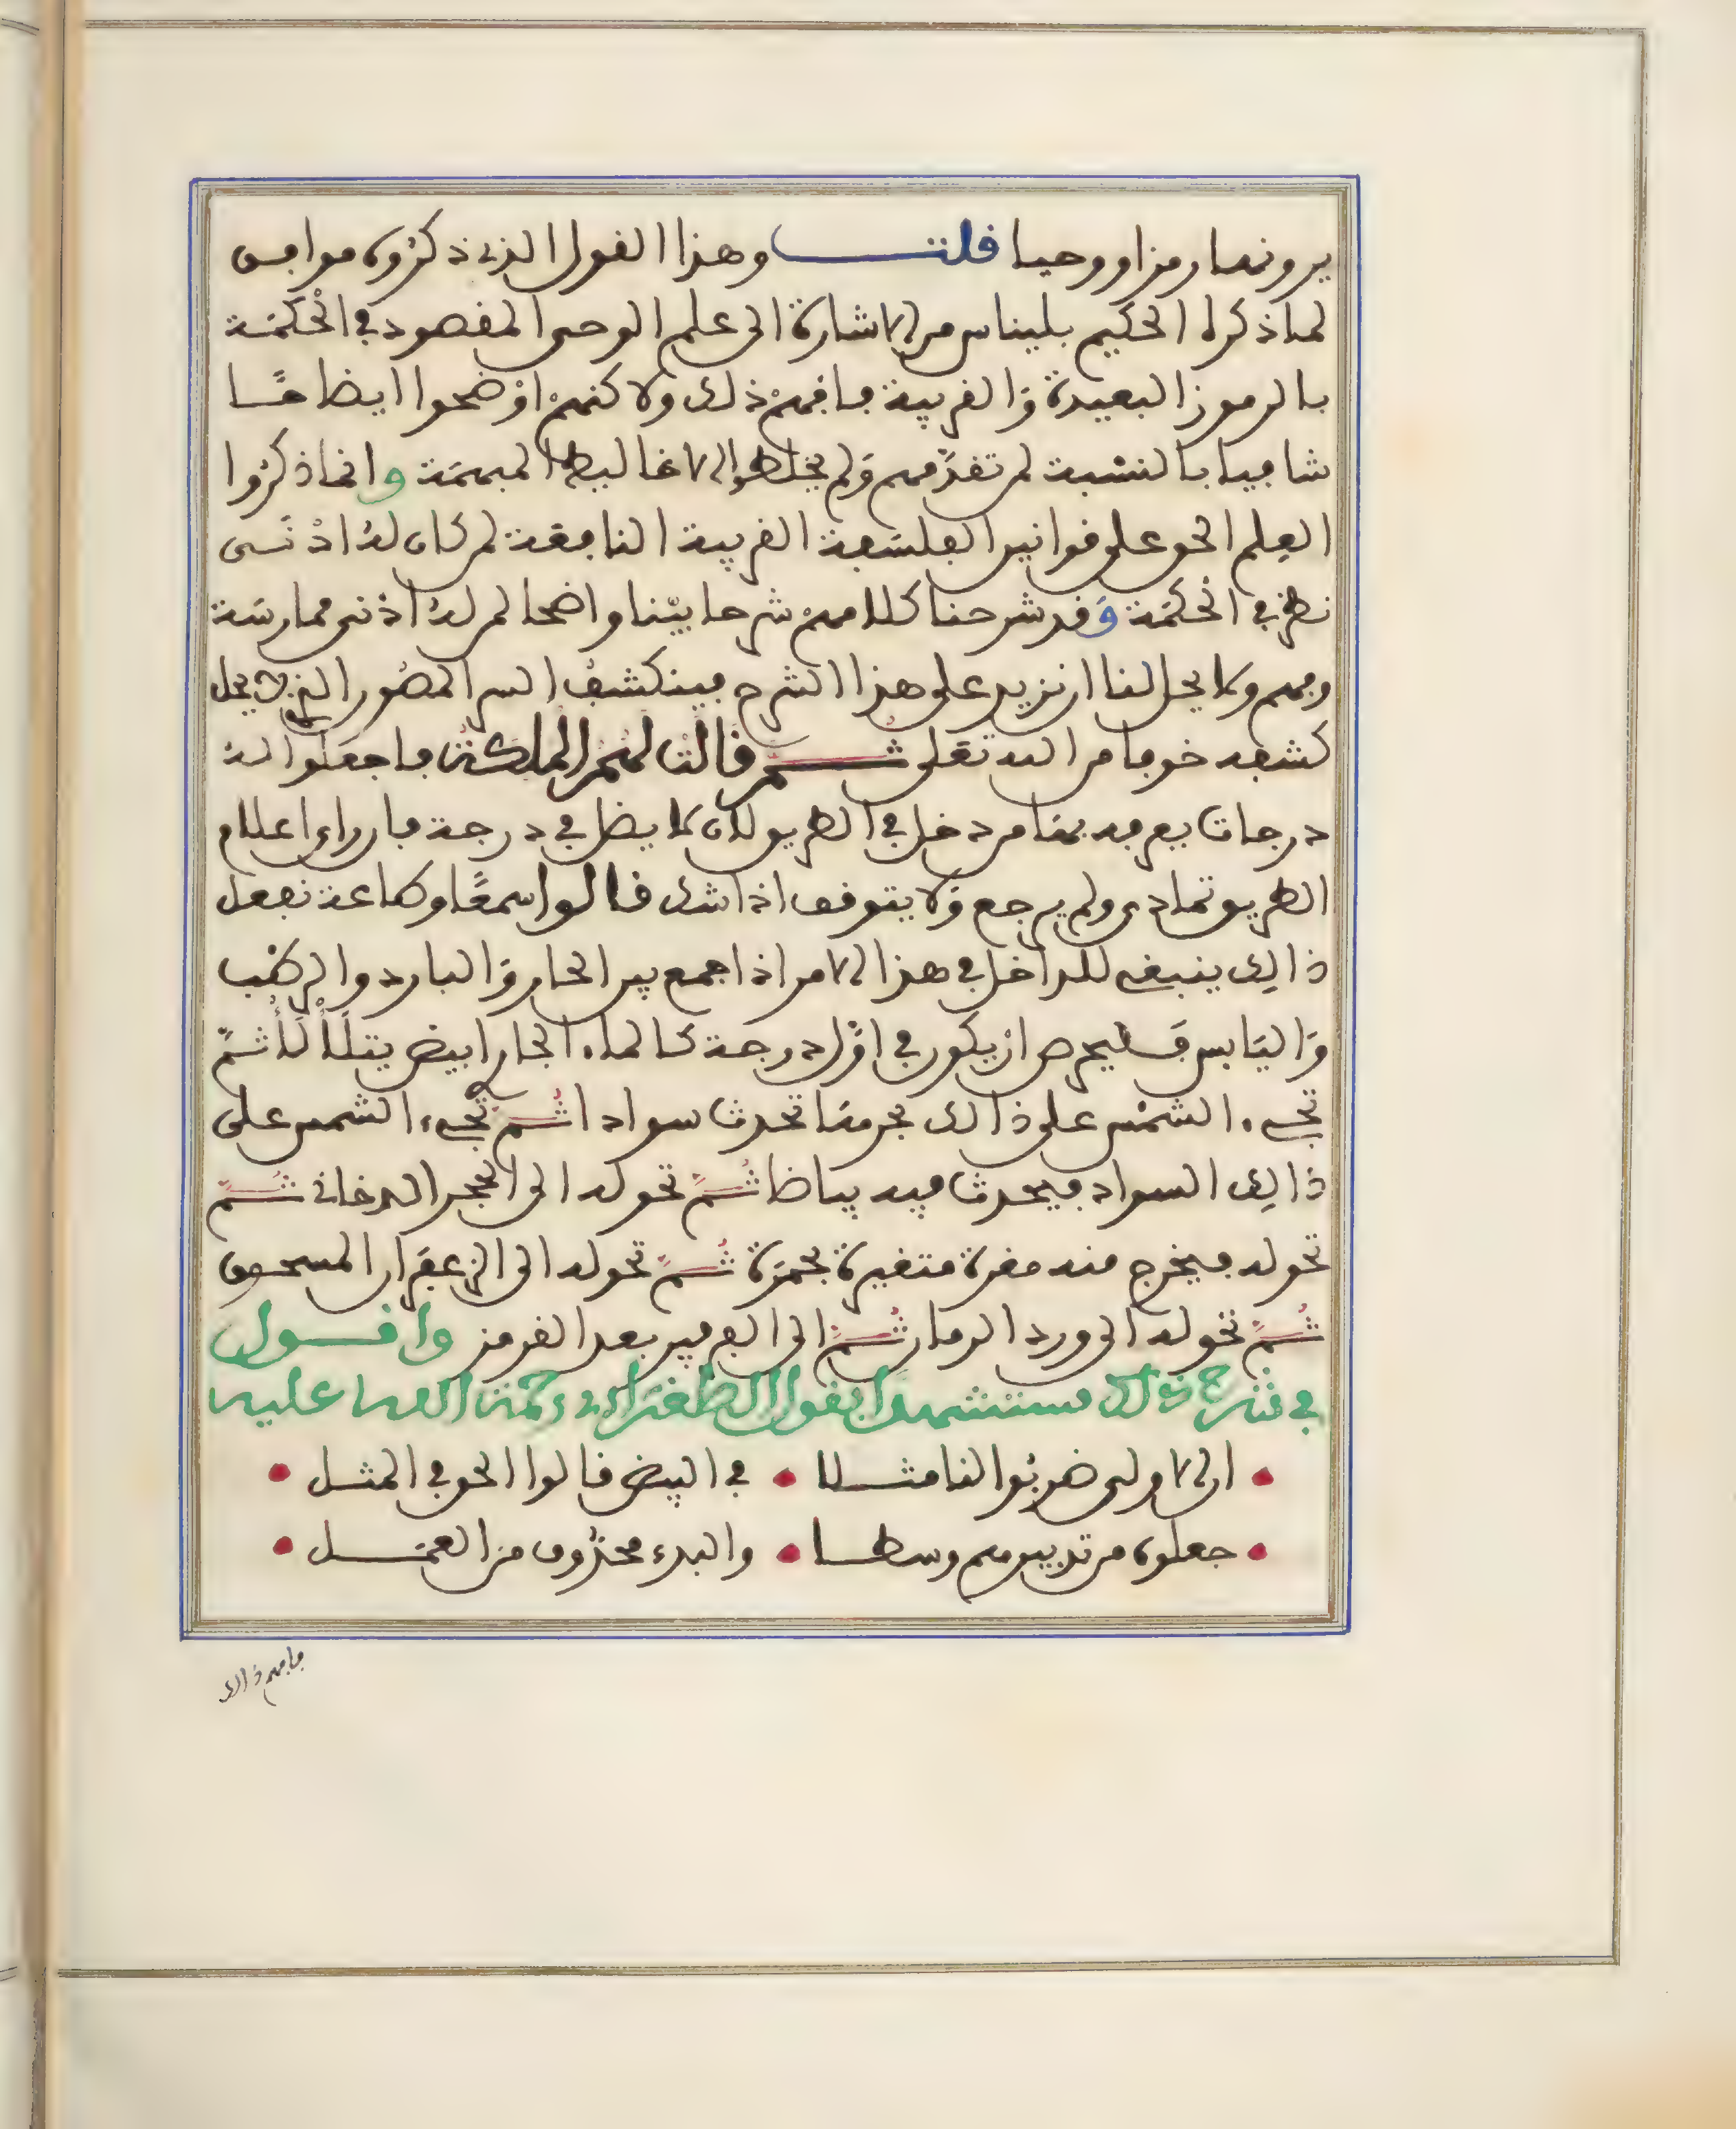 يرونها رمزا ووحيا قلت وهذا القول الذي ذكروه موافق
لما ذكره الحكيم بليناس من الاشارة الى علم الوحي المقصود في الحكمة
بالرموز البعيدة والقريبة فافهم ذلك ولاكنهم اوضحوا ايضاحًا
شافيا بالنسبة لمن تقدّمهم ولم يخلطوا الاغاليط المبهمة وانما ذكروا
العلم الحق على قوانين الفلسفة القريبة النافعة لمن كان له ادْنى
نظر في الحكمة وقد شرحنا كلامهم شرحا بيّنا واضحا لمن له ادنى ممارسة
وفهم ولا يحل لنا ان نزيد على هذا الشرح فينكشف السر المصون الذي لا يحل
كشفه خوفا من الله تعلى ثم قالت لهم الملكة فاجعلوا له
درجات يعرفه بها من دخل في الطريق لان لا يضل في درجة فان راى اعلام
الطريق تمادى ولم يرجع ولا يتوقف اذا شك قالوا سمعًا وطاعة نفعل
ذالك ينبغي للداخل في هذا الامر اذا جمع بين الحار والبارد والرطب
واليابس فليحرص ان يكون في اوّل درجة كالماء الجار ابيض يتلألأ ثمّ
تجيء الشمس على ذالك بحرها تحدث سوادا ثم تجيء الشمس على
ذالك السواد فيحدث فيه بياضا ثمّ تحوله الى الحجر الدخاني ثمّ
تحوله فيخرج منه مغرة متغيرة بحمرة ثمّ تحوله الى الزعفران المسحوق
ثمّ تحوله الى ورد الرمان ثمّ الى الفرفير بعد القرمز واقول
في شرح ذلك مستشهدا بقول الطغراءي رحمة الله عليه
ان الاولى ضربوا لنا مثلا • في البيض قالوا الحق في المثل
جعلوه من تدبيرهم وسطا • والبدء محذوف من العمل
فافهم ذالك